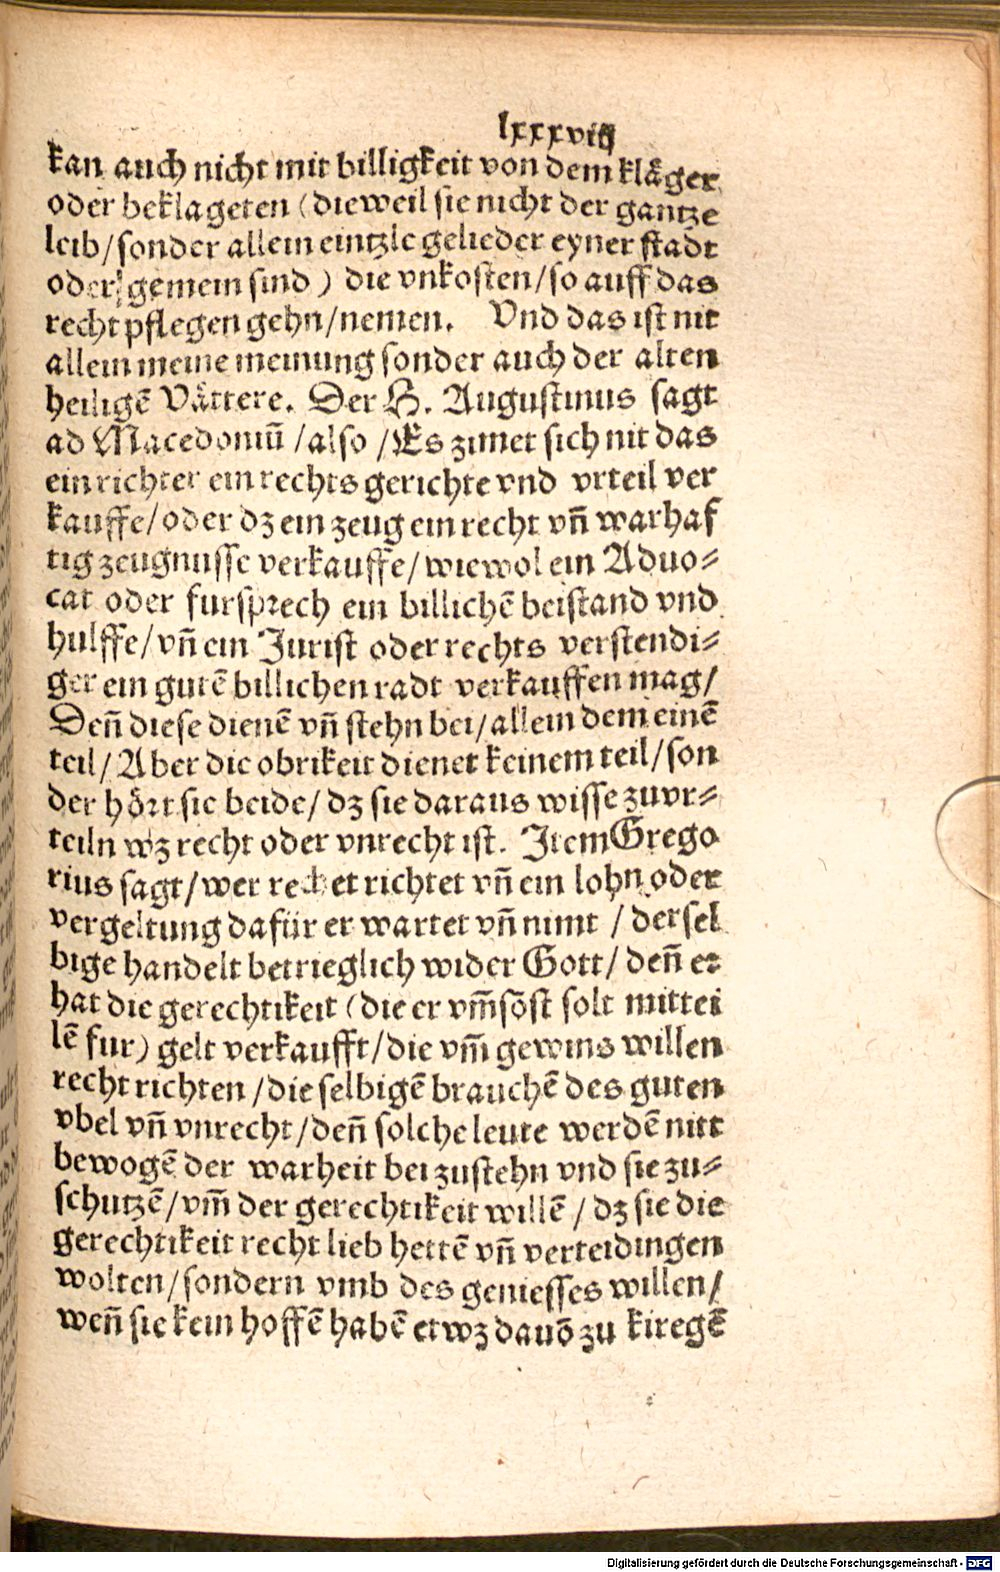 lxxxviij
kan auch nicht mit billigkeit von dem kläger
oder beklageten (dieweil sie nicht der gantze
leib/sonder allein eintzle gelieder eyner stadt
oder gemein sind) die vnkosten/so auff das
recht pflegen gehn/nemen. Vnd das ist nit
allein meine meinung sonder auch der alten
heiligē Vättere. Der H. Augustinus sagt
ad Macedoniū /also /Es zimet sich nit das
ein richter ein rechts gerichte vnd vrteil ver
kauffe/oder dz ein zeug ein recht vn̄ warhaf
tig zeugnusse verkauffe/wiewol ein Aduo-
cat oder fursprech ein billichē beistand vnd
hulffe/vn̄ ein Jurist oder rechts verstendi-
ger ein gutē billichen radt verkauffen mag/
Den̄ diese dienē vn̄ stehn bei/allein dem einē
teil/Aber die obrikeit dienet keinem teil/son
der hört sie beide/dz sie daraus wisse zuvr-
teiln wz recht oder vnrecht ist. Item Grego
rius sagt/wer rechet richtet vn̄ ein lohn oder
vergeltung dafür er wartet vn̄ nimt /dersel
bige handelt betrieglich wider Gott/den̄ er
hat die gerechtikeit (die er vm̄sōst solt mittei
lē fur) gelt verkaufft/die vm̄ gewins willen
recht richten /die selbigē brauchē des guten
vbel vn̄ vnrecht/den̄ solche leute werdē nitt
bewogē der warheit bei zustehn vnd sie zu-
schutzē/vm̄ der gerechtikeit willē /dz sie die
gerechtikeit recht lieb hettē vn̄ verteidingen
wolten/sondern vmb des geniesses willen/
wen̄ sie kein hoffē habē etwz dauō zu kiregē
Digitalisierung gefördert durch die Deutsche Forschungsgemeinschaft - DFG